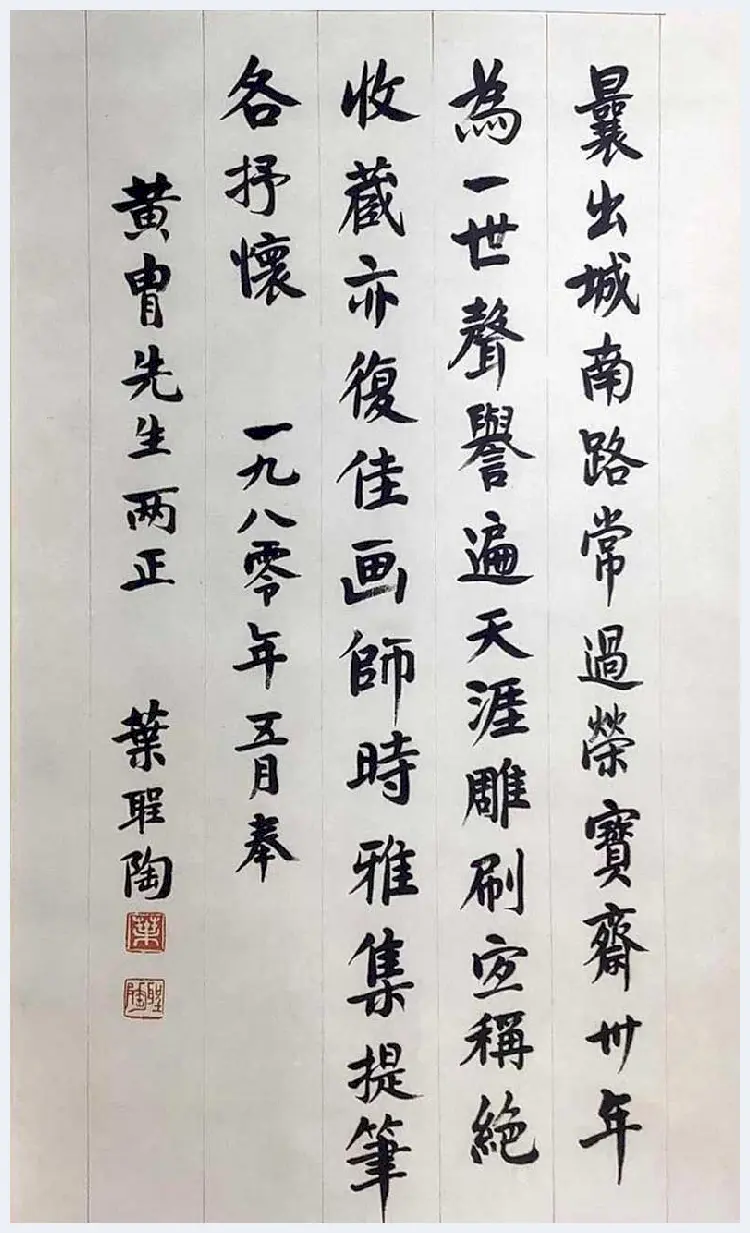 曩出城南路常過榮寶齋卅年
為一世聲譽遍天涯雕刷宜稱絕
收蔵亦復佳画師時雅集提筆
各抒懷 一九八零年五月奉
黃胄先生两正 葉聖陶
葉
聖陶